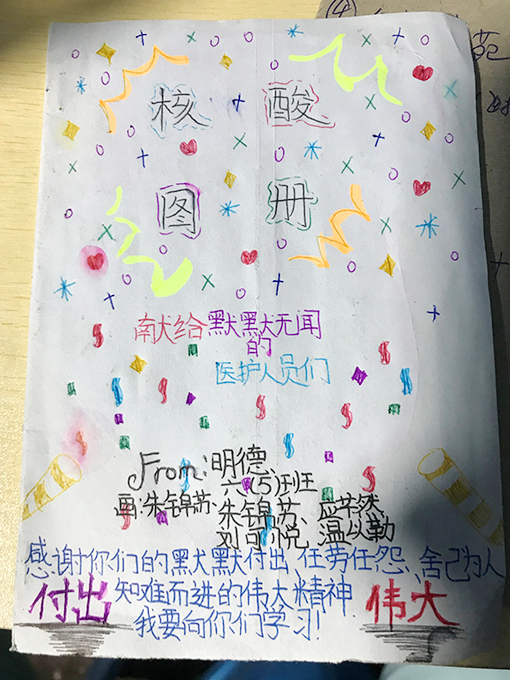 ④
苑
核酸
图册
献给默默无闻
的
医护人员们
From: 明德
六(5)班
画:朱锦芬、朱锦芬、应芊然
刘可悦、温以勤
感谢你们的默默付出、任劳任怨、舍己为人
付出 知难而进的伟大精神 伟大
我要向你们学习!